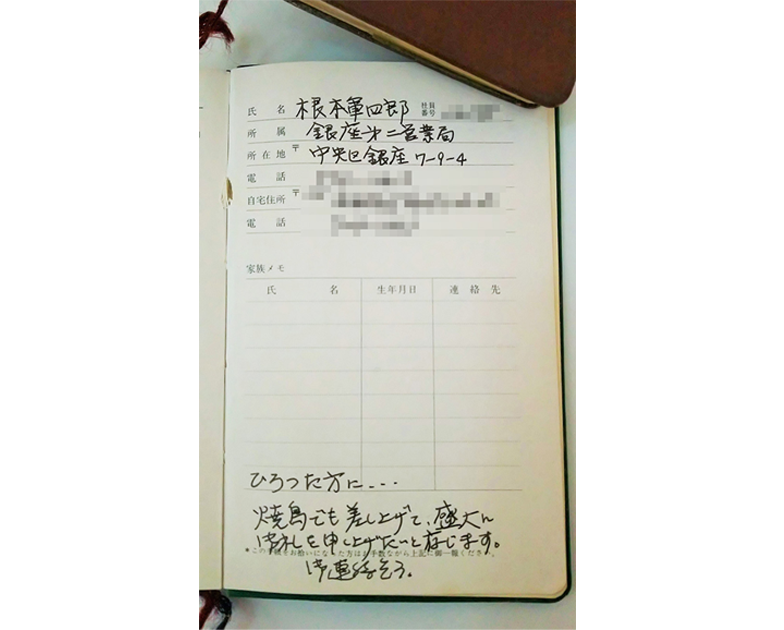 氏 名 根本軍四郎 社員番号
所 属 銀座第二営業局
所在地 〒 中央区銀座7-9-4
電 話
自宅住所 〒
電 話
家族メモ
氏 名 生年月日 連絡先
ひろった方に...
焼鳥でも差し上げて、盛大に
御礼を申し上げたいと存じます。
*この手帳をお拾いになった方はお手数ながら上記に御一報ください。
御連絡乞う.